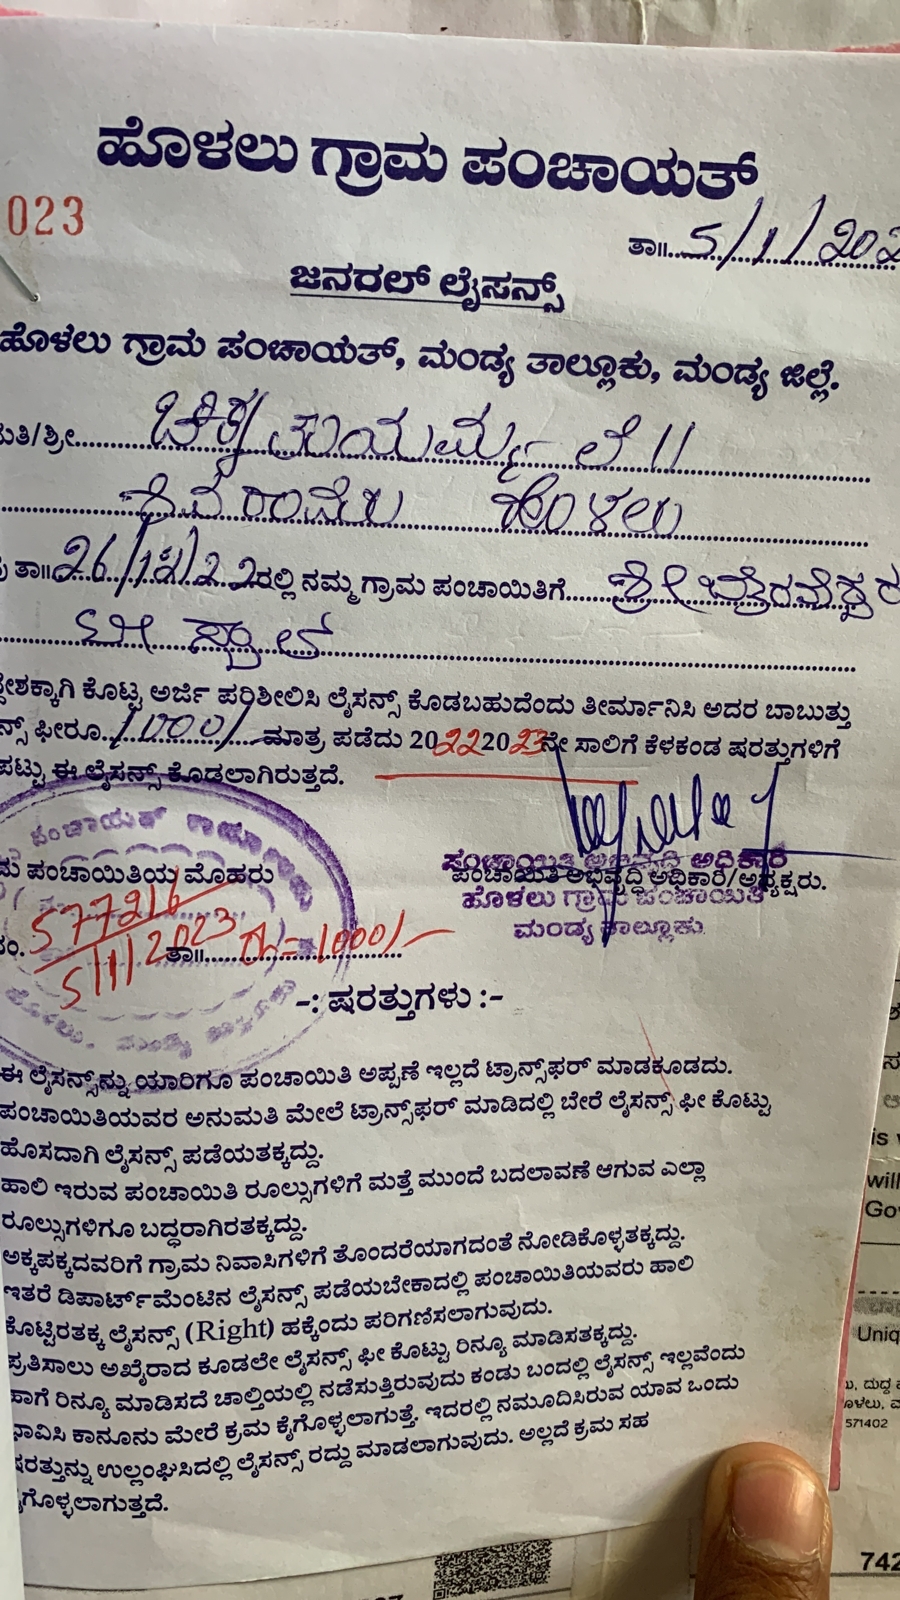 ಹೊಳಲು ಗ್ರಾಮ ಪಂಚಾಯತ್
023
ತಾ॥ 5/1/202
ಜನರಲ್ ಲೈಸನ್ಸ್
ಹೊಳಲು ಗ್ರಾಮ ಪಂಚಾಯತ್, ಮಂಡ್ಯ ತಾಲ್ಲೂಕು, ಮಂಡ್ಯ ಜಿಲ್ಲೆ.
ಮತಿ/ಶ್ರೀ ಚಿಕ್ಕತಾಯಮ್ಮ
ಹೊಳಲು
ತಾ॥ 26/12/22ರಲ್ಲಿ ನಮ್ಮ ಗ್ರಾಮ ಪಂಚಾಯಿತಿಗೆ ಶ್ರೀ ಭೈರವೇಶ್ವರ
ದೇಶಕ್ಕಾಗಿ ಕೊಟ್ಟ ಅರ್ಜಿ ಪರಿಶೀಲಿಸಿ ಲೈಸನ್ಸ್ ಕೊಡಬಹುದೆಂದು ತೀರ್ಮಾನಿಸಿ ಅದರ ಬಾಬುತ್ತು
ನ್ಸ್ ಫೀರೂ. 1000/- ಮಾತ್ರ ಪಡೆದು 2022 2023ನೇ ಸಾಲಿಗೆ ಕೆಳಕಂಡ ಷರತ್ತುಗಳಿಗೆ
ಪಟ್ಟು ಈ ಲೈಸನ್ಸ್ ಕೊಡಲಾಗಿರುತ್ತದೆ.
ಪಂಚಾಯತ್ ಕಾರ್ಯಾಲಯ
ಪಂಚಾಯಿತಿಯ ಮೊಹರು
ಪಂಚಾಯಿತಿ ಅಭಿವೃದ್ಧಿ ಅಧಿಕಾರಿ
ಪಂಚಾಯಿತಿ ಅಭಿವೃದ್ಧಿ ಅಧಿಕಾರಿ/ಅಧ್ಯಕ್ಷರು.
ಹೊಳಲು ಗ್ರಾಮ ಪಂಚಾಯಿತಿ
ಮಂಡ್ಯ ತಾಲ್ಲೂಕು
ನಂ. 577216
5/1/2023 ತಾ॥ 1000/-
-: ಷರತ್ತುಗಳು :-
ಈ ಲೈಸನ್ಸ್‌ನ್ನು ಯಾರಿಗೂ ಪಂಚಾಯಿತಿ ಅಪ್ಪಣೆ ಇಲ್ಲದೆ ಟ್ರಾನ್ಸ್‌ಫರ್ ಮಾಡಕೂಡದು.
ಪಂಚಾಯಿತಿಯವರ ಅನುಮತಿ ಮೇಲೆ ಟ್ರಾನ್ಸ್‌ಫರ್ ಮಾಡಿದಲ್ಲಿ ಬೇರೆ ಲೈಸನ್ಸ್ ಫೀ ಕೊಟ್ಟು
ಹೊಸದಾಗಿ ಲೈಸನ್ಸ್ ಪಡೆಯತಕ್ಕದ್ದು.
ಹಾಲಿ ಇರುವ ಪಂಚಾಯಿತಿ ರೂಲ್ಸುಗಳಿಗೆ ಮತ್ತೆ ಮುಂದೆ ಬದಲಾವಣೆ ಆಗುವ ಎಲ್ಲಾ
ರೂಲ್ಸುಗಳಿಗೂ ಬದ್ಧರಾಗಿರತಕ್ಕದ್ದು.
ಅಕ್ಕಪಕ್ಕದವರಿಗೆ ಗ್ರಾಮ ನಿವಾಸಿಗಳಿಗೆ ತೊಂದರೆಯಾಗದಂತೆ ನೋಡಿಕೊಳ್ಳತಕ್ಕದ್ದು.
ಇತರೆ ಡಿಪಾರ್ಟ್‌ಮೆಂಟಿನ ಲೈಸನ್ಸ್ ಪಡೆಯಬೇಕಾದಲ್ಲಿ ಪಂಚಾಯಿತಿಯವರು ಹಾಲಿ
ಕೊಟ್ಟಿರತಕ್ಕ ಲೈಸನ್ಸ್ (Right) ಹಕ್ಕೆಂದು ಪರಿಗಣಿಸಲಾಗುವುದು.
ಪ್ರತಿಸಾಲು ಅಖೈರಾದ ಕೂಡಲೇ ಲೈಸನ್ಸ್ ಫೀ ಕೊಟ್ಟು ರಿನ್ಯೂ ಮಾಡಿಸತಕ್ಕದ್ದು.
ಹಾಗೆ ರಿನ್ಯೂ ಮಾಡಿಸದೆ ಚಾಲ್ತಿಯಲ್ಲಿ ನಡೆಸುತ್ತಿರುವುದು ಕಂಡು ಬಂದಲ್ಲಿ ಲೈಸನ್ಸ್ ಇಲ್ಲವೆಂದು
ಭಾವಿಸಿ ಕಾನೂನು ಮೇರೆ ಕ್ರಮ ಕೈಗೊಳ್ಳಲಾಗುತ್ತೆ. ಇದರಲ್ಲಿ ನಮೂದಿಸಿರುವ ಯಾವ ಒಂದು
ಷರತ್ತುನ್ನು ಉಲ್ಲಂಘಿಸಿದಲ್ಲಿ ಲೈಸನ್ಸ್ ರದ್ದು ಮಾಡಲಾಗುವುದು. ಅಲ್ಲದೆ ಕ್ರಮ ಸಹ
ಗೊಳ್ಳಲಾಗುತ್ತದೆ.
is
will
Go
Uniq
571402
742